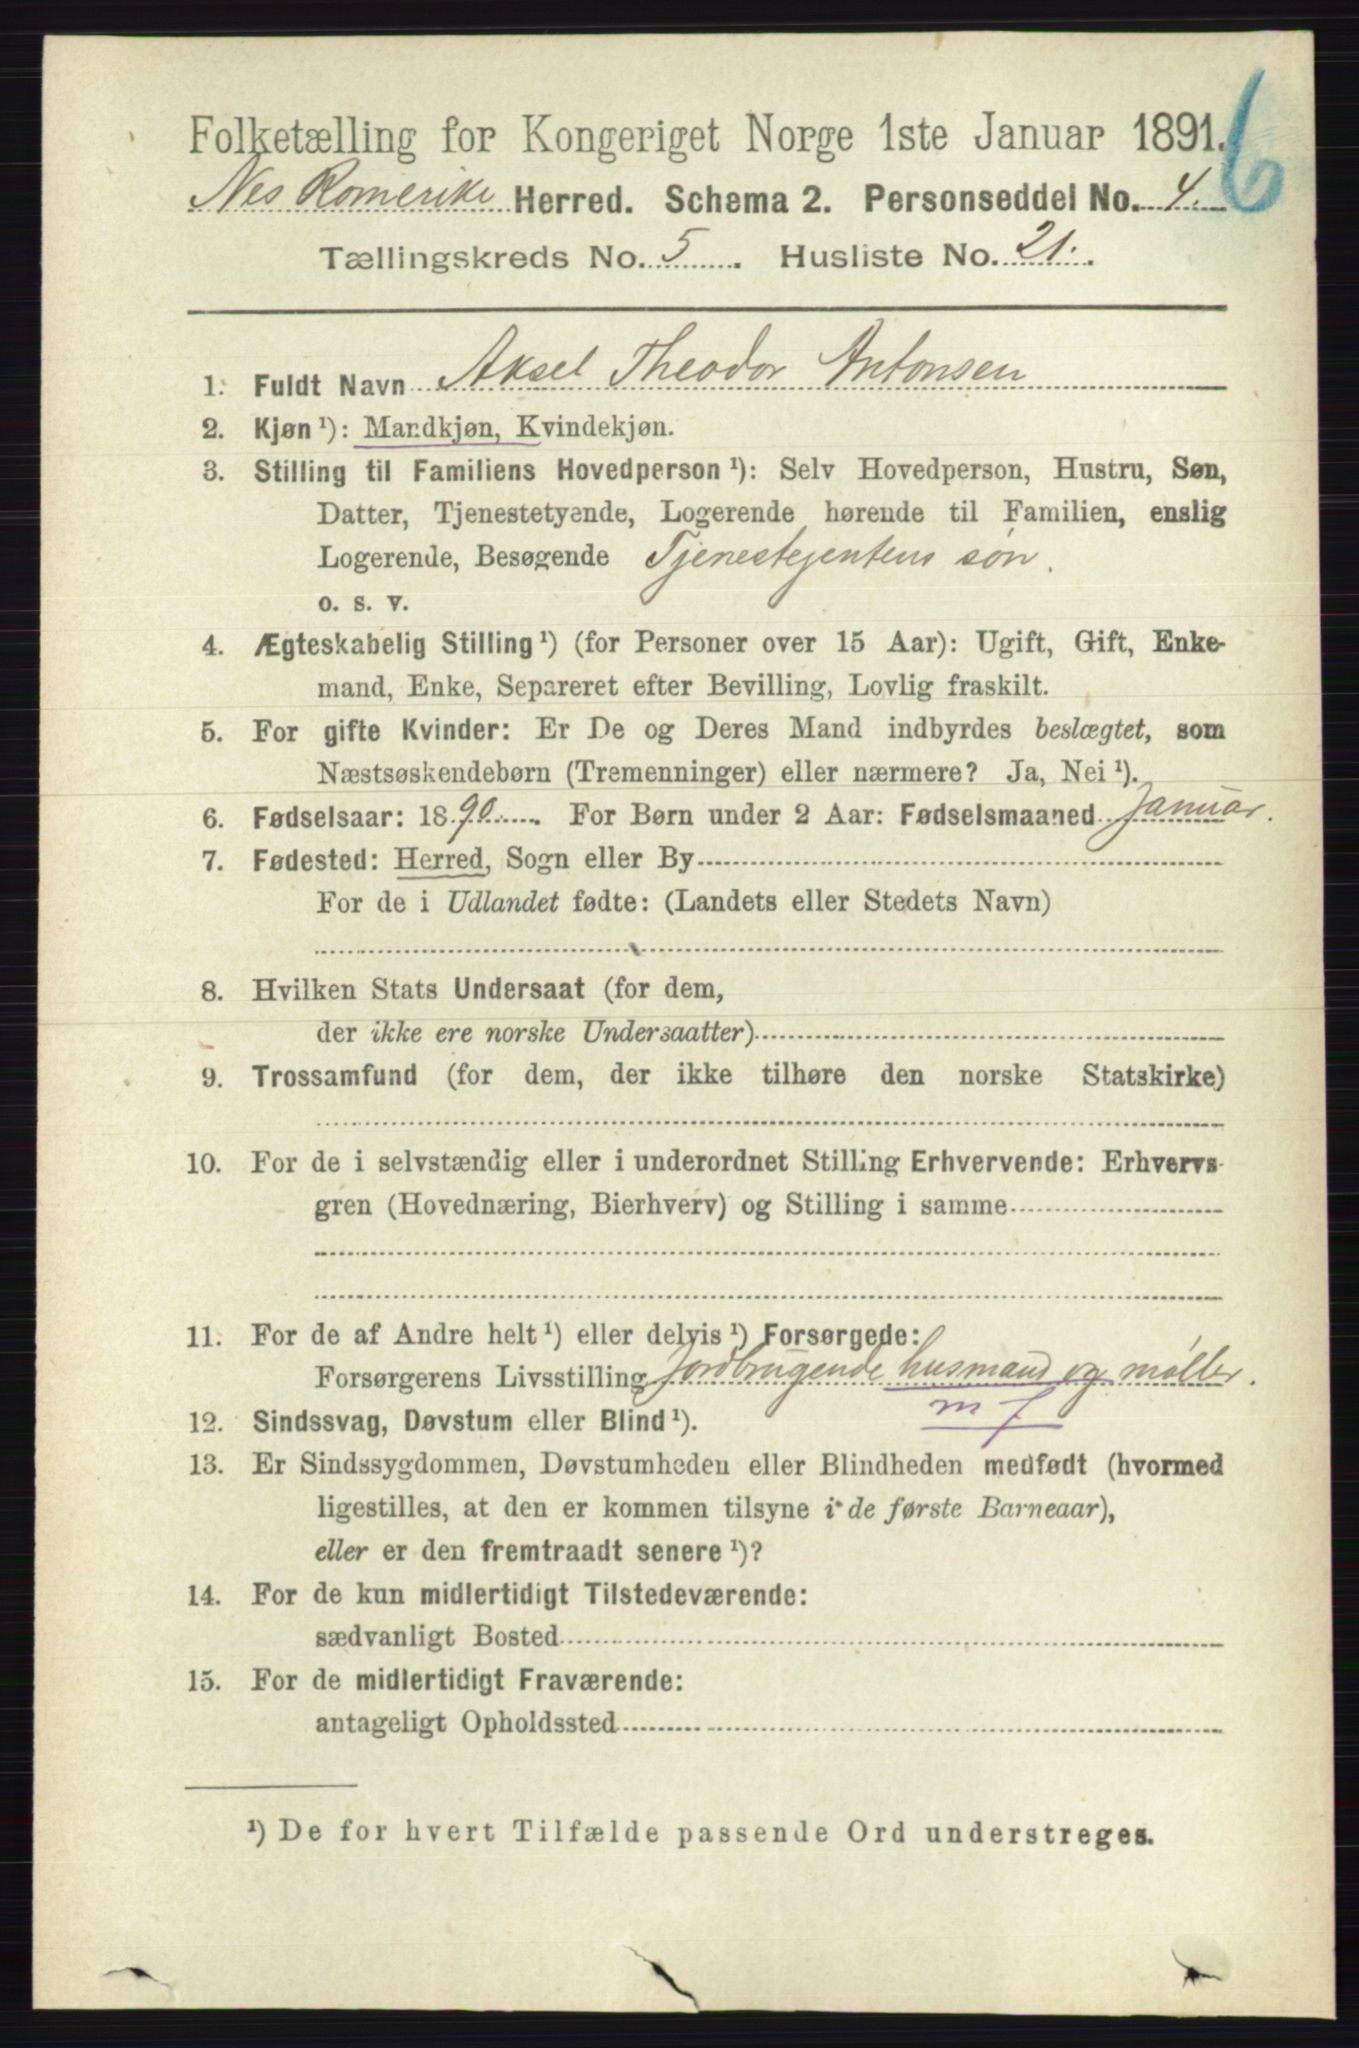 6
Folketælling for Kongeriget Norge 1ste Januar 1891.
Nes Romerike Herred. Schema 2. Personseddel No. 4.
Tællingskreds No. 5. Husliste No. 21.
1. Fuldt Navn Aksel Theodor Antonsen
2. Kjøn ¹): Mandkjøn, Kvindekjøn.
3. Stilling til Familiens Hovedperson ¹): Selv Hovedperson, Hustru, Søn,
Datter, Tjenestetyende, Logerende hørende til Familien, enslig
Logerende, Besøgende Tjenestejentens søn.
o. s. v.
4. Ægteskabelig Stilling ¹) (for Personer over 15 Aar): Ugift, Gift, Enke-
mand, Enke, Separeret efter Bevilling, Lovlig fraskilt.
5. For gifte Kvinder: Er De og Deres Mand indbyrdes beslægtet, som
Næstsøskendebørn (Tremenninger) eller nærmere? Ja, Nei ¹).
6. Fødselsaar: 1890. For Børn under 2 Aar: Fødselsmaaned Januar.
7. Fødested: Herred, Sogn eller By
For de i Udlandet fødte: (Landets eller Stedets Navn)
8. Hvilken Stats Undersaat (for dem,
der ikke ere norske Undersaatter)
9. Trossamfund (for dem, der ikke tilhøre den norske Statskirke)
10. For de i selvstændig eller i underordnet Stilling Erhvervende: Erhvervs-
gren (Hovednæring, Bierhverv) og Stilling i samme
11. For de af Andre helt ¹) eller delvis ¹) Forsørgede:
Forsørgerens Livsstilling Jordbrugende husmand og møller.
m f
12. Sindssvag, Døvstum eller Blind ¹).
13. Er Sindssygdommen, Døvstumheden eller Blindheden medfødt (hvormed
ligestilles, at den er kommen tilsyne i de første Barneaar),
eller er den fremtraadt senere ¹)?
14. For de kun midlertidigt Tilstedeværende:
sædvanligt Bosted
15. For de midlertidigt Fraværende:
antageligt Opholdssted
¹) De for hvert Tilfælde passende Ord understreges.